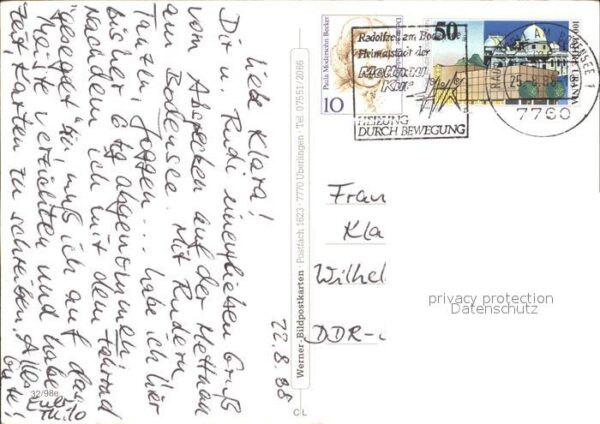 22.8.88
Liebe Klara!
Dir u. Rudi einen lieben Gruß
vom Abspecken auf der Mettnau
am Bodensee. Mit Rudern,
Tanzen, Joggen ... habe ich hier
bisher 6 kg abgenommen!
Nachdem ich mit dem Fahrrad
bin, muß ich auf das
verzichten und habe
Zeit, Karten zu schreiben. Alles
Gute!
Euer
32/98e
Werner-Bildpostkarten · Postfach 1623 · 7770 Überlingen · Tel 07551/2066
CL
Paula Modersohn-Becker
10
50
Radolfzell am Bodensee
Heimatstadt der
Mettnau
Kur
HEILUNG
DURCH BEWEGUNG
7760
Frau
Kla
Wilhel
DDR-
privacy protection
Datenschutz